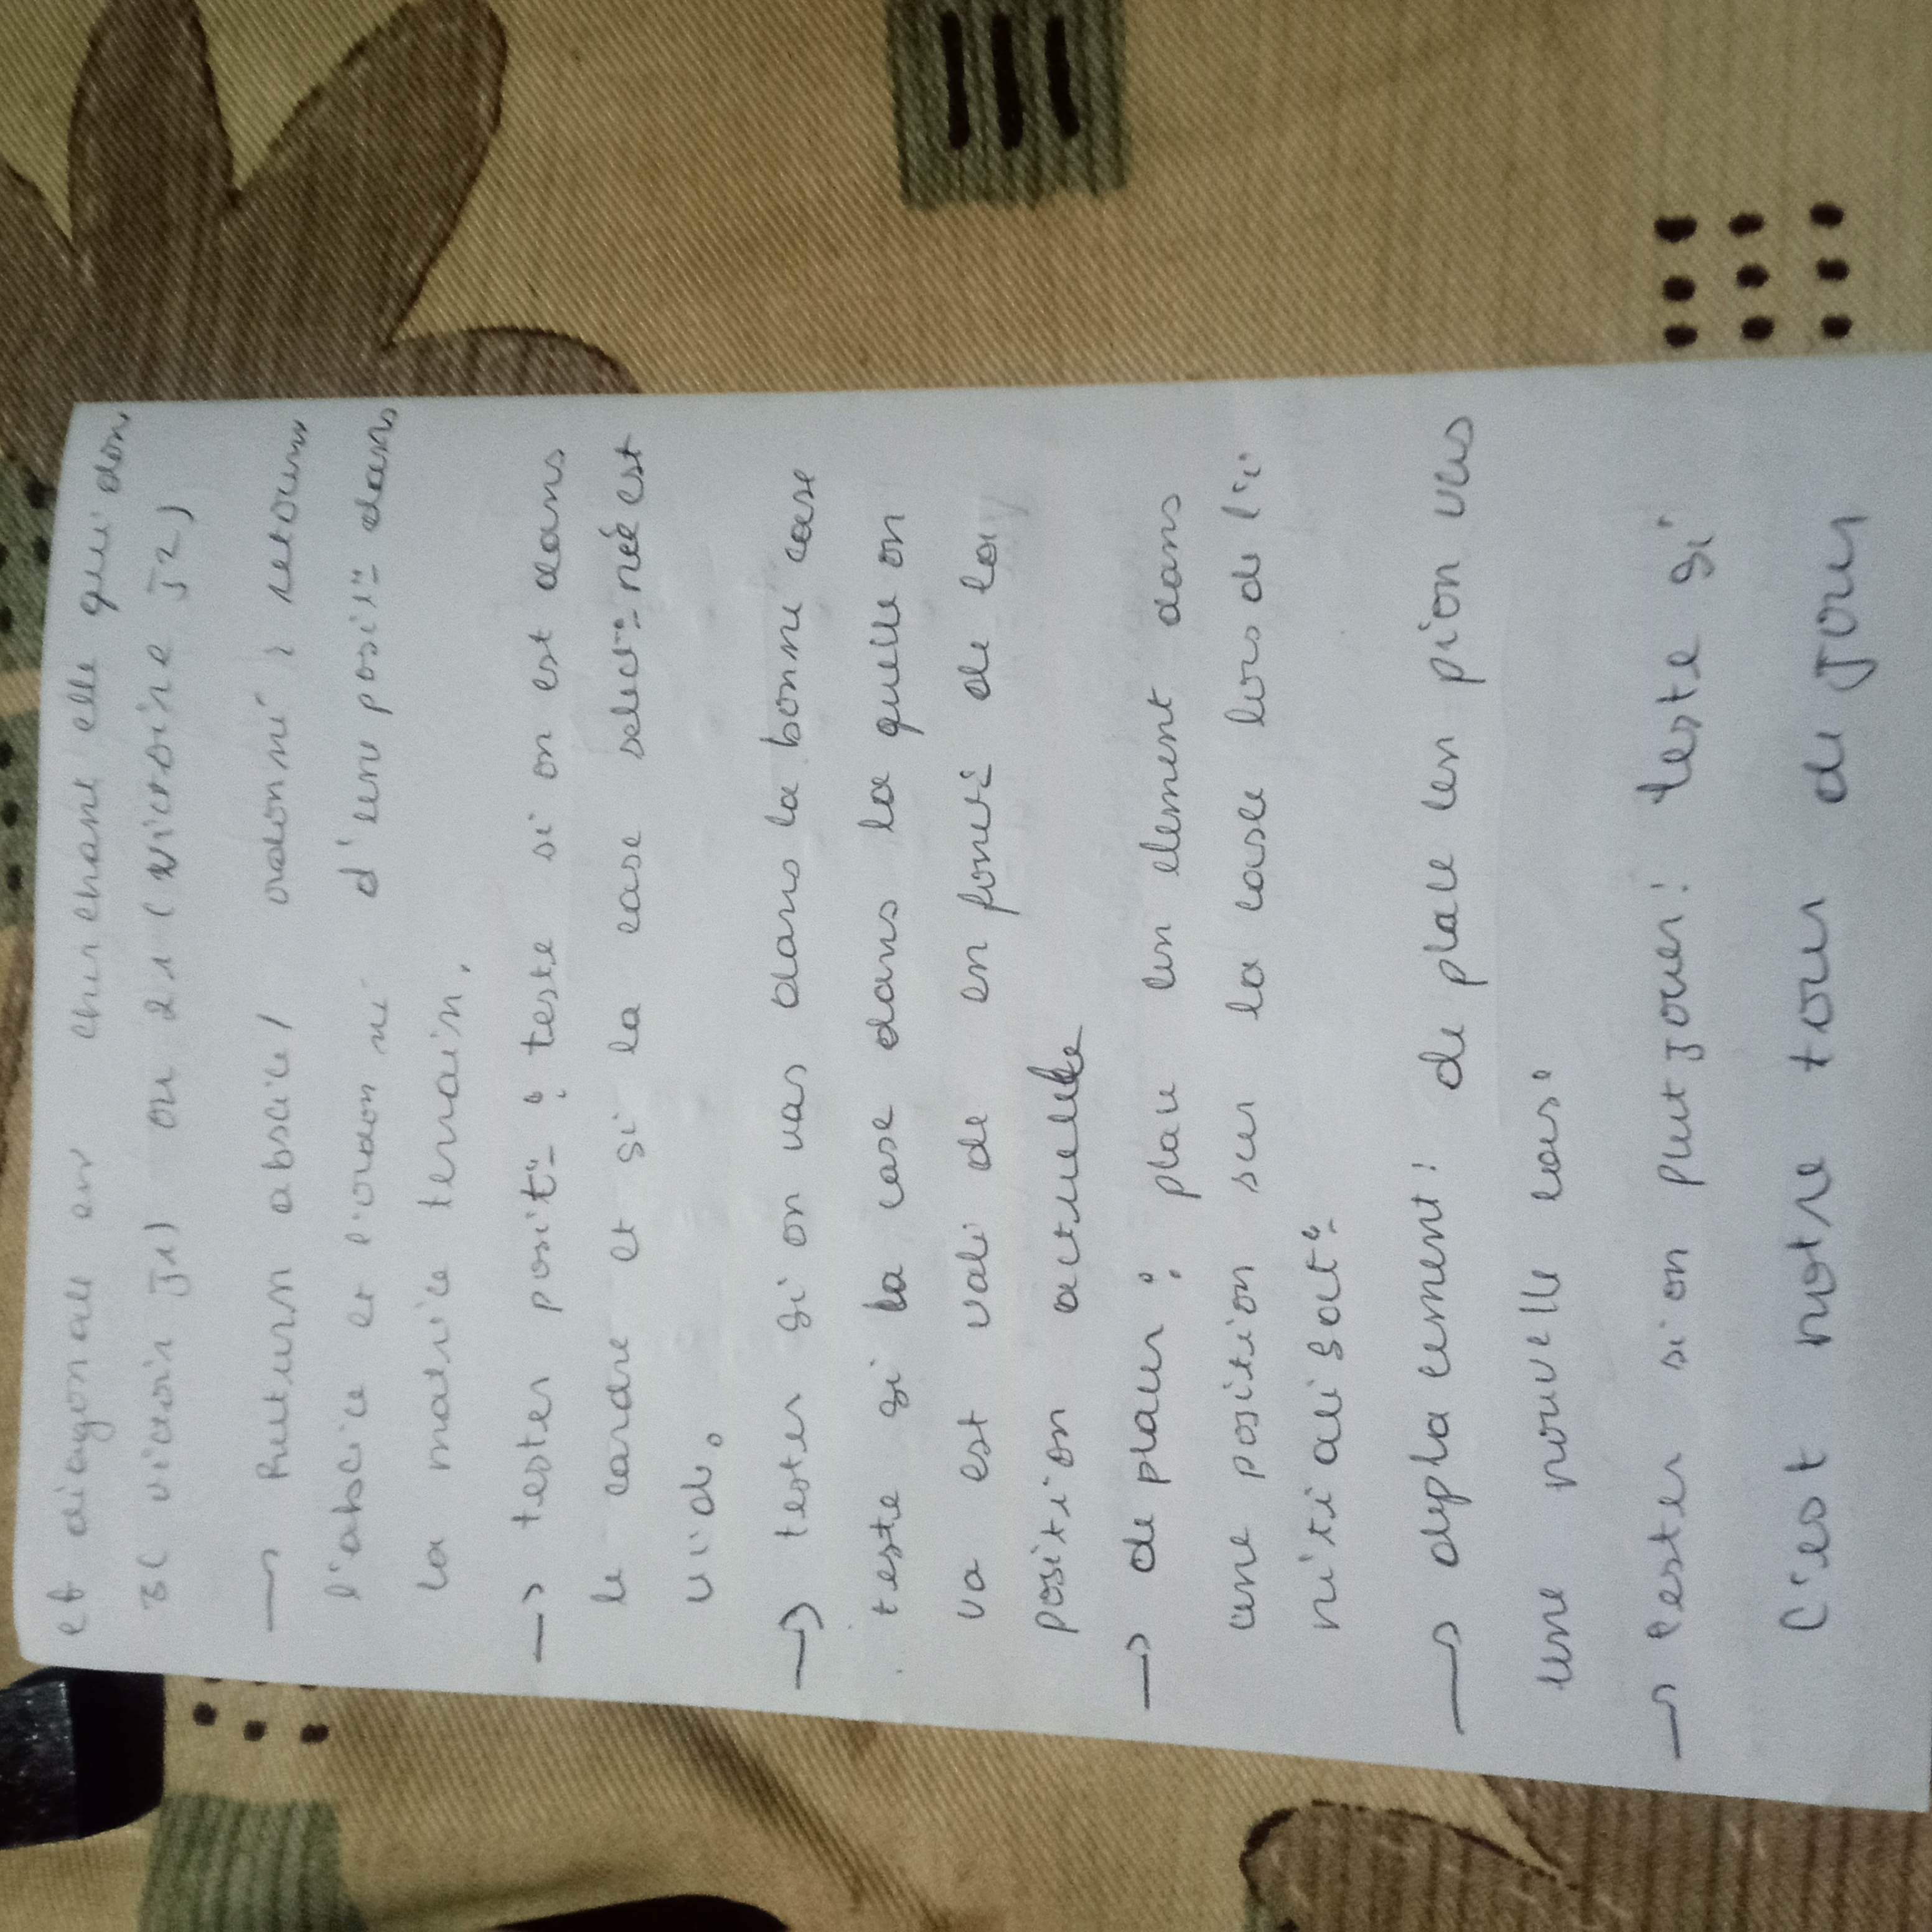 et diagonale en cherchant elle qui don
3 (victoire J1) ou 21 (victoire J2)
→ Return abscice/ ordonné ; retourn
l'abscice et l'ordonné d'une posit°- dans
la matrice terrain.
→ tester posit°- : teste si on est dans
le cardre et si la case select°-née est
vide.
→ tester si on vas dans la bonne case
teste si la case dans la quelle on
va est valide de en fonct°- de la
position actuelle
→ de placer : place un element dans
une position sur la case lors de l'i
nitialisat°-
→ deplacement : de place un pion vers
une nouvelle case
→ tester si on peut jouer : teste si
c'est notre tour de jouer